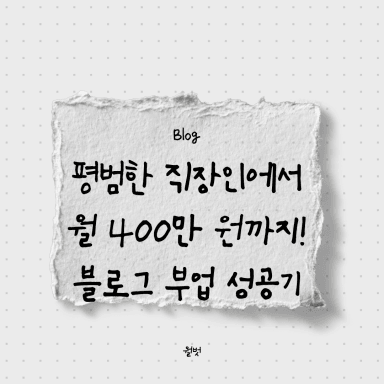 Blog
평범한 직장인에서
월 400만 원까지!
블로그 부업 성공기
월벗